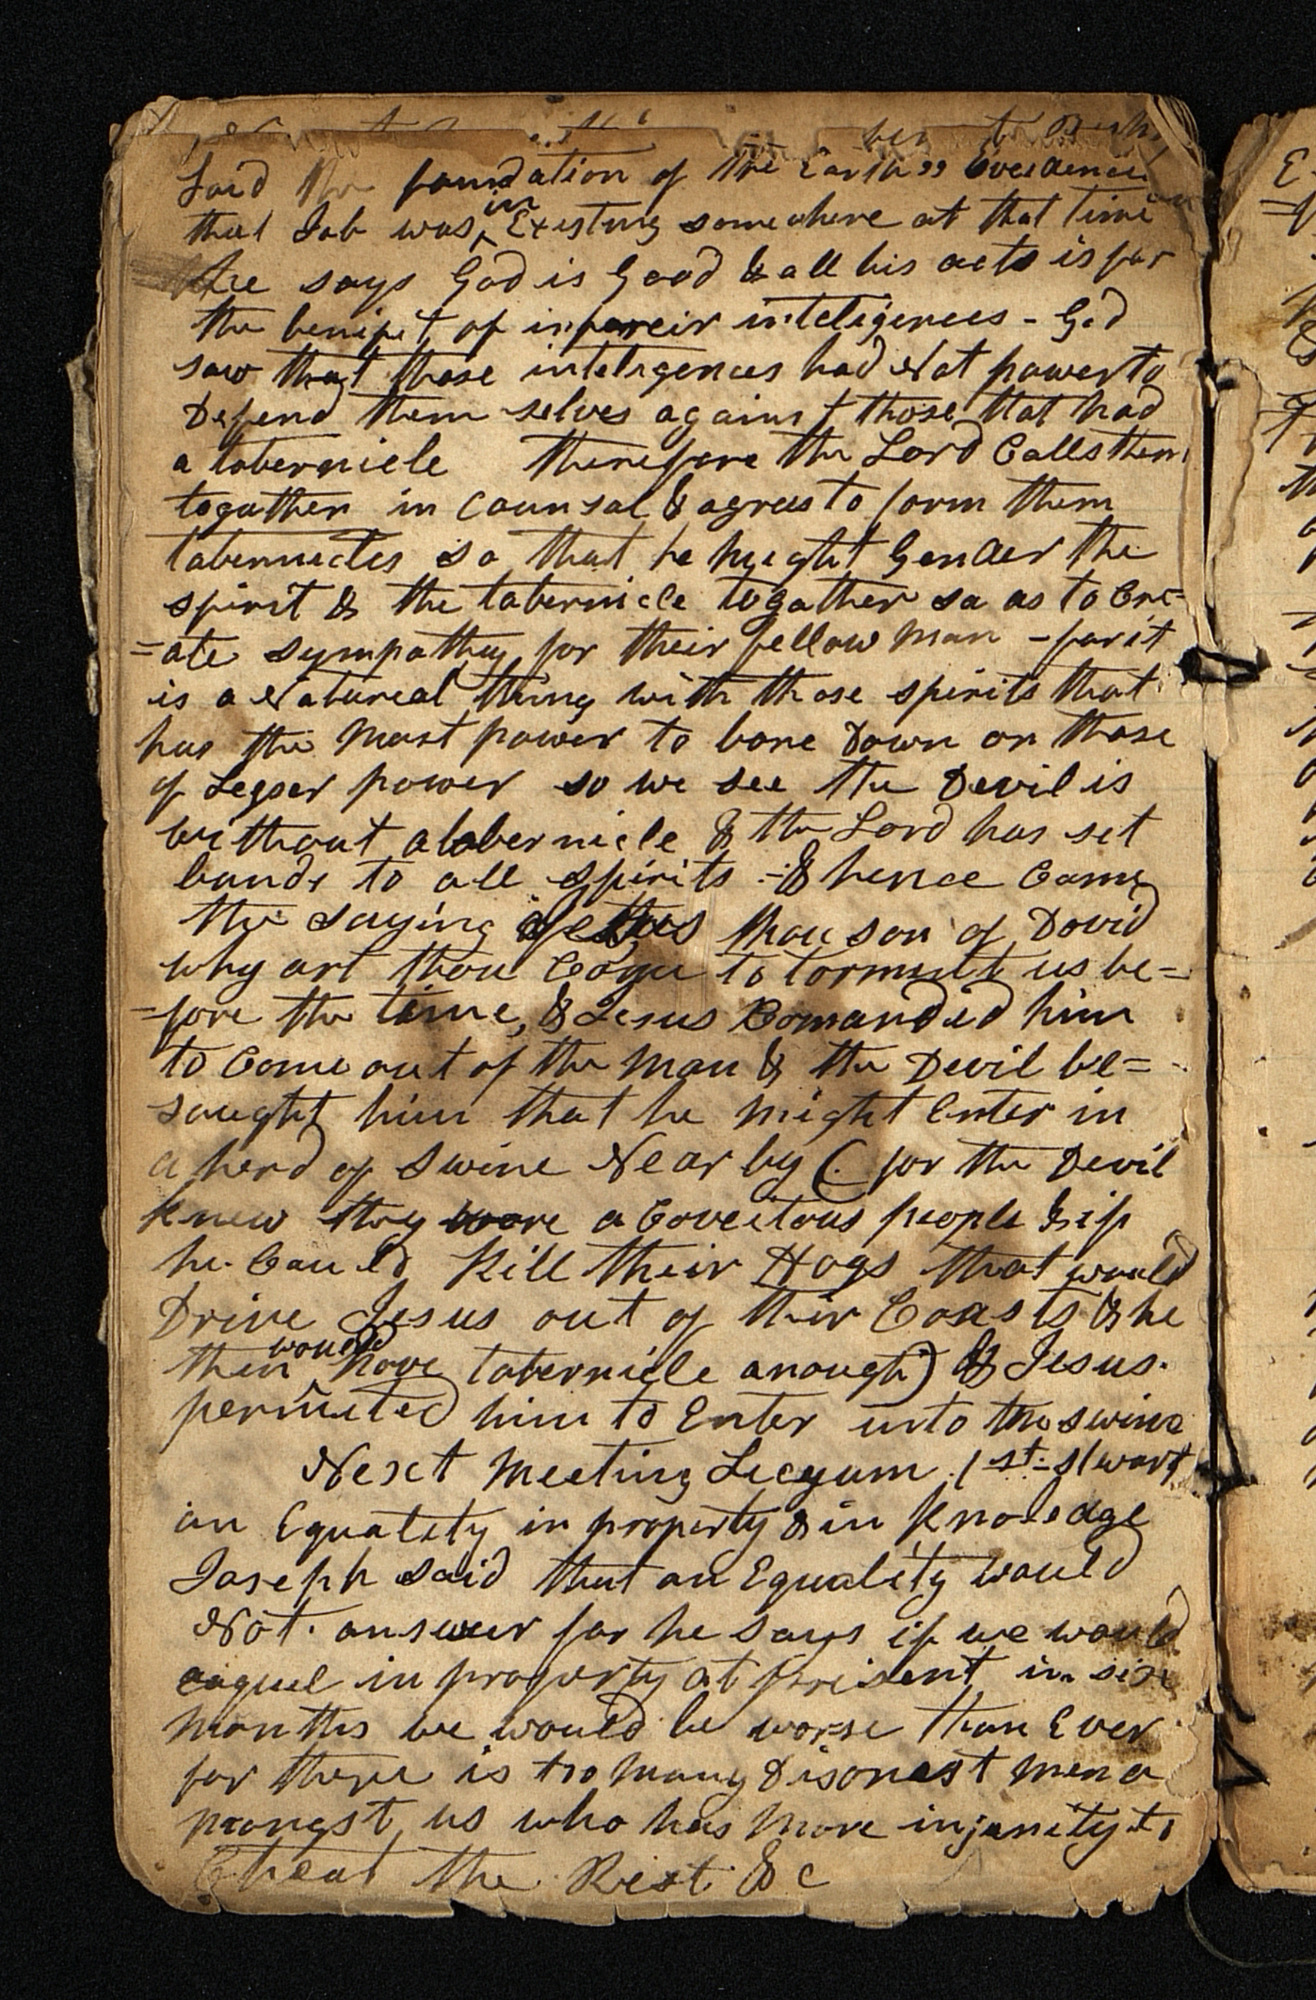 Laid the foundation of the Earth" Evidencing
that Job was in Existing somewhere at that time
he says God is Good & all his acts is for
the benifit of inferreir inteligences - God
saw that those intelegences had Not power to
Defend them selves against those that had
a tabernicle therefore the Lord Calls them
togather in Counsal & agrees to form them
tabernacles so that he might Gender the
spirit & the tabernicle togather so as to Cre=
=ate sympathy for their fellow man - for it
is a Natureal thing with those spirits that
has the most power to bore Down on those
of Lesser power so we see the Devil is
without a tabernicle & the Lord has set
bands to all spirits - & hence Came
the saying Jesus thou son of David
why art thou Come to torment us be=
=fore the time, & Jesus Comanded him
to Come out of the man & the Devil be=
sought him that he might Enter in
a herd of swine Near by (for the Devil
knew they were a Coveitous people & if
he Could Kill their Hogs that would
Drive Jesus out of their Coasts & he
then would have tabernicle anough) & Jesus
permited him to Enter into the swine
Next Meeting Lycyum 1st Stwart
an Equality in property & in knoledge
Joseph said that an Equality would
Not answer for he says if we would
eaquel in property at prisent in six
months we would be worse than Ever
for there is too many Disonest men a
mongst us who has more injenity to
Cheat the Rest &c